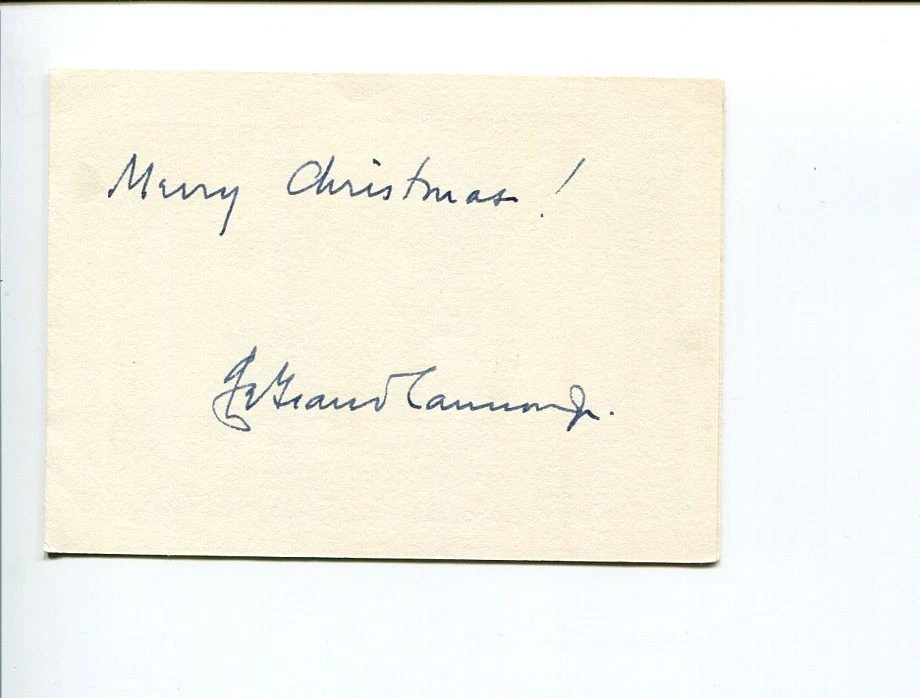 Merry Christmas!
LeGrand Cannon Jr.